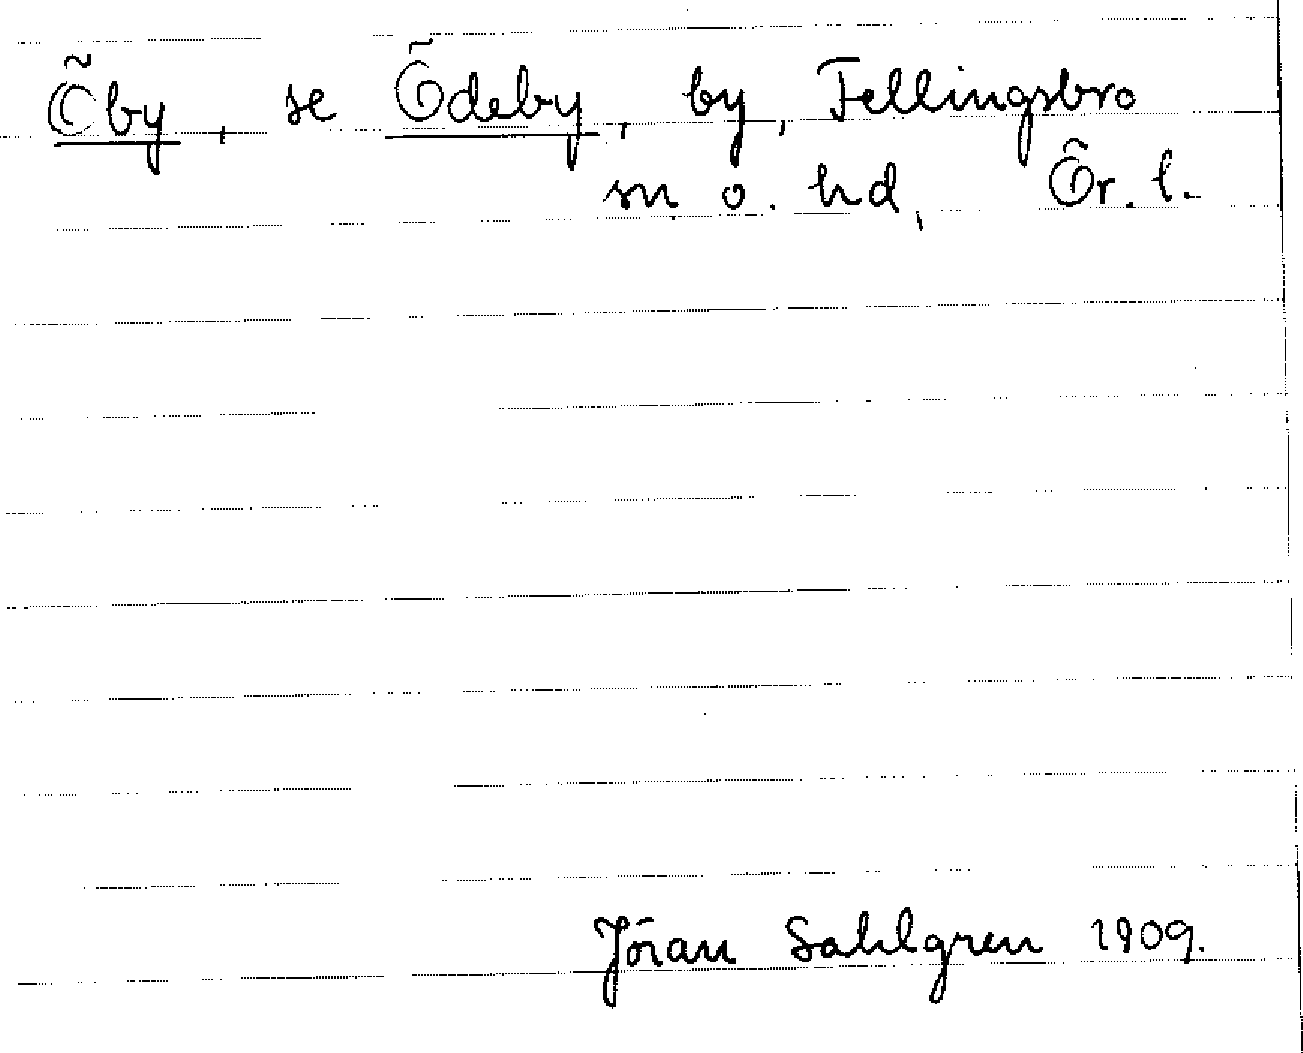 Öby, se Ödeby, by, Fellingsbro
sn o. hd, Ör. l.
Jöran Sahlgren 1909.